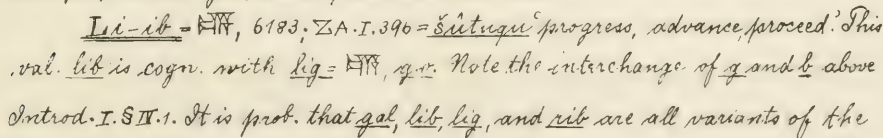 Li-ib = 𒆗, 6183; ZA. I. 396 = šûtuqu 'progress, advance, proceed.' This
val. lib is cogn. with lig = 𒆗, q.v. Note the interchange of g and b above
Introd. I. § IV. 1. It is prob. that gal, lib, lig, and rib are all variants of the